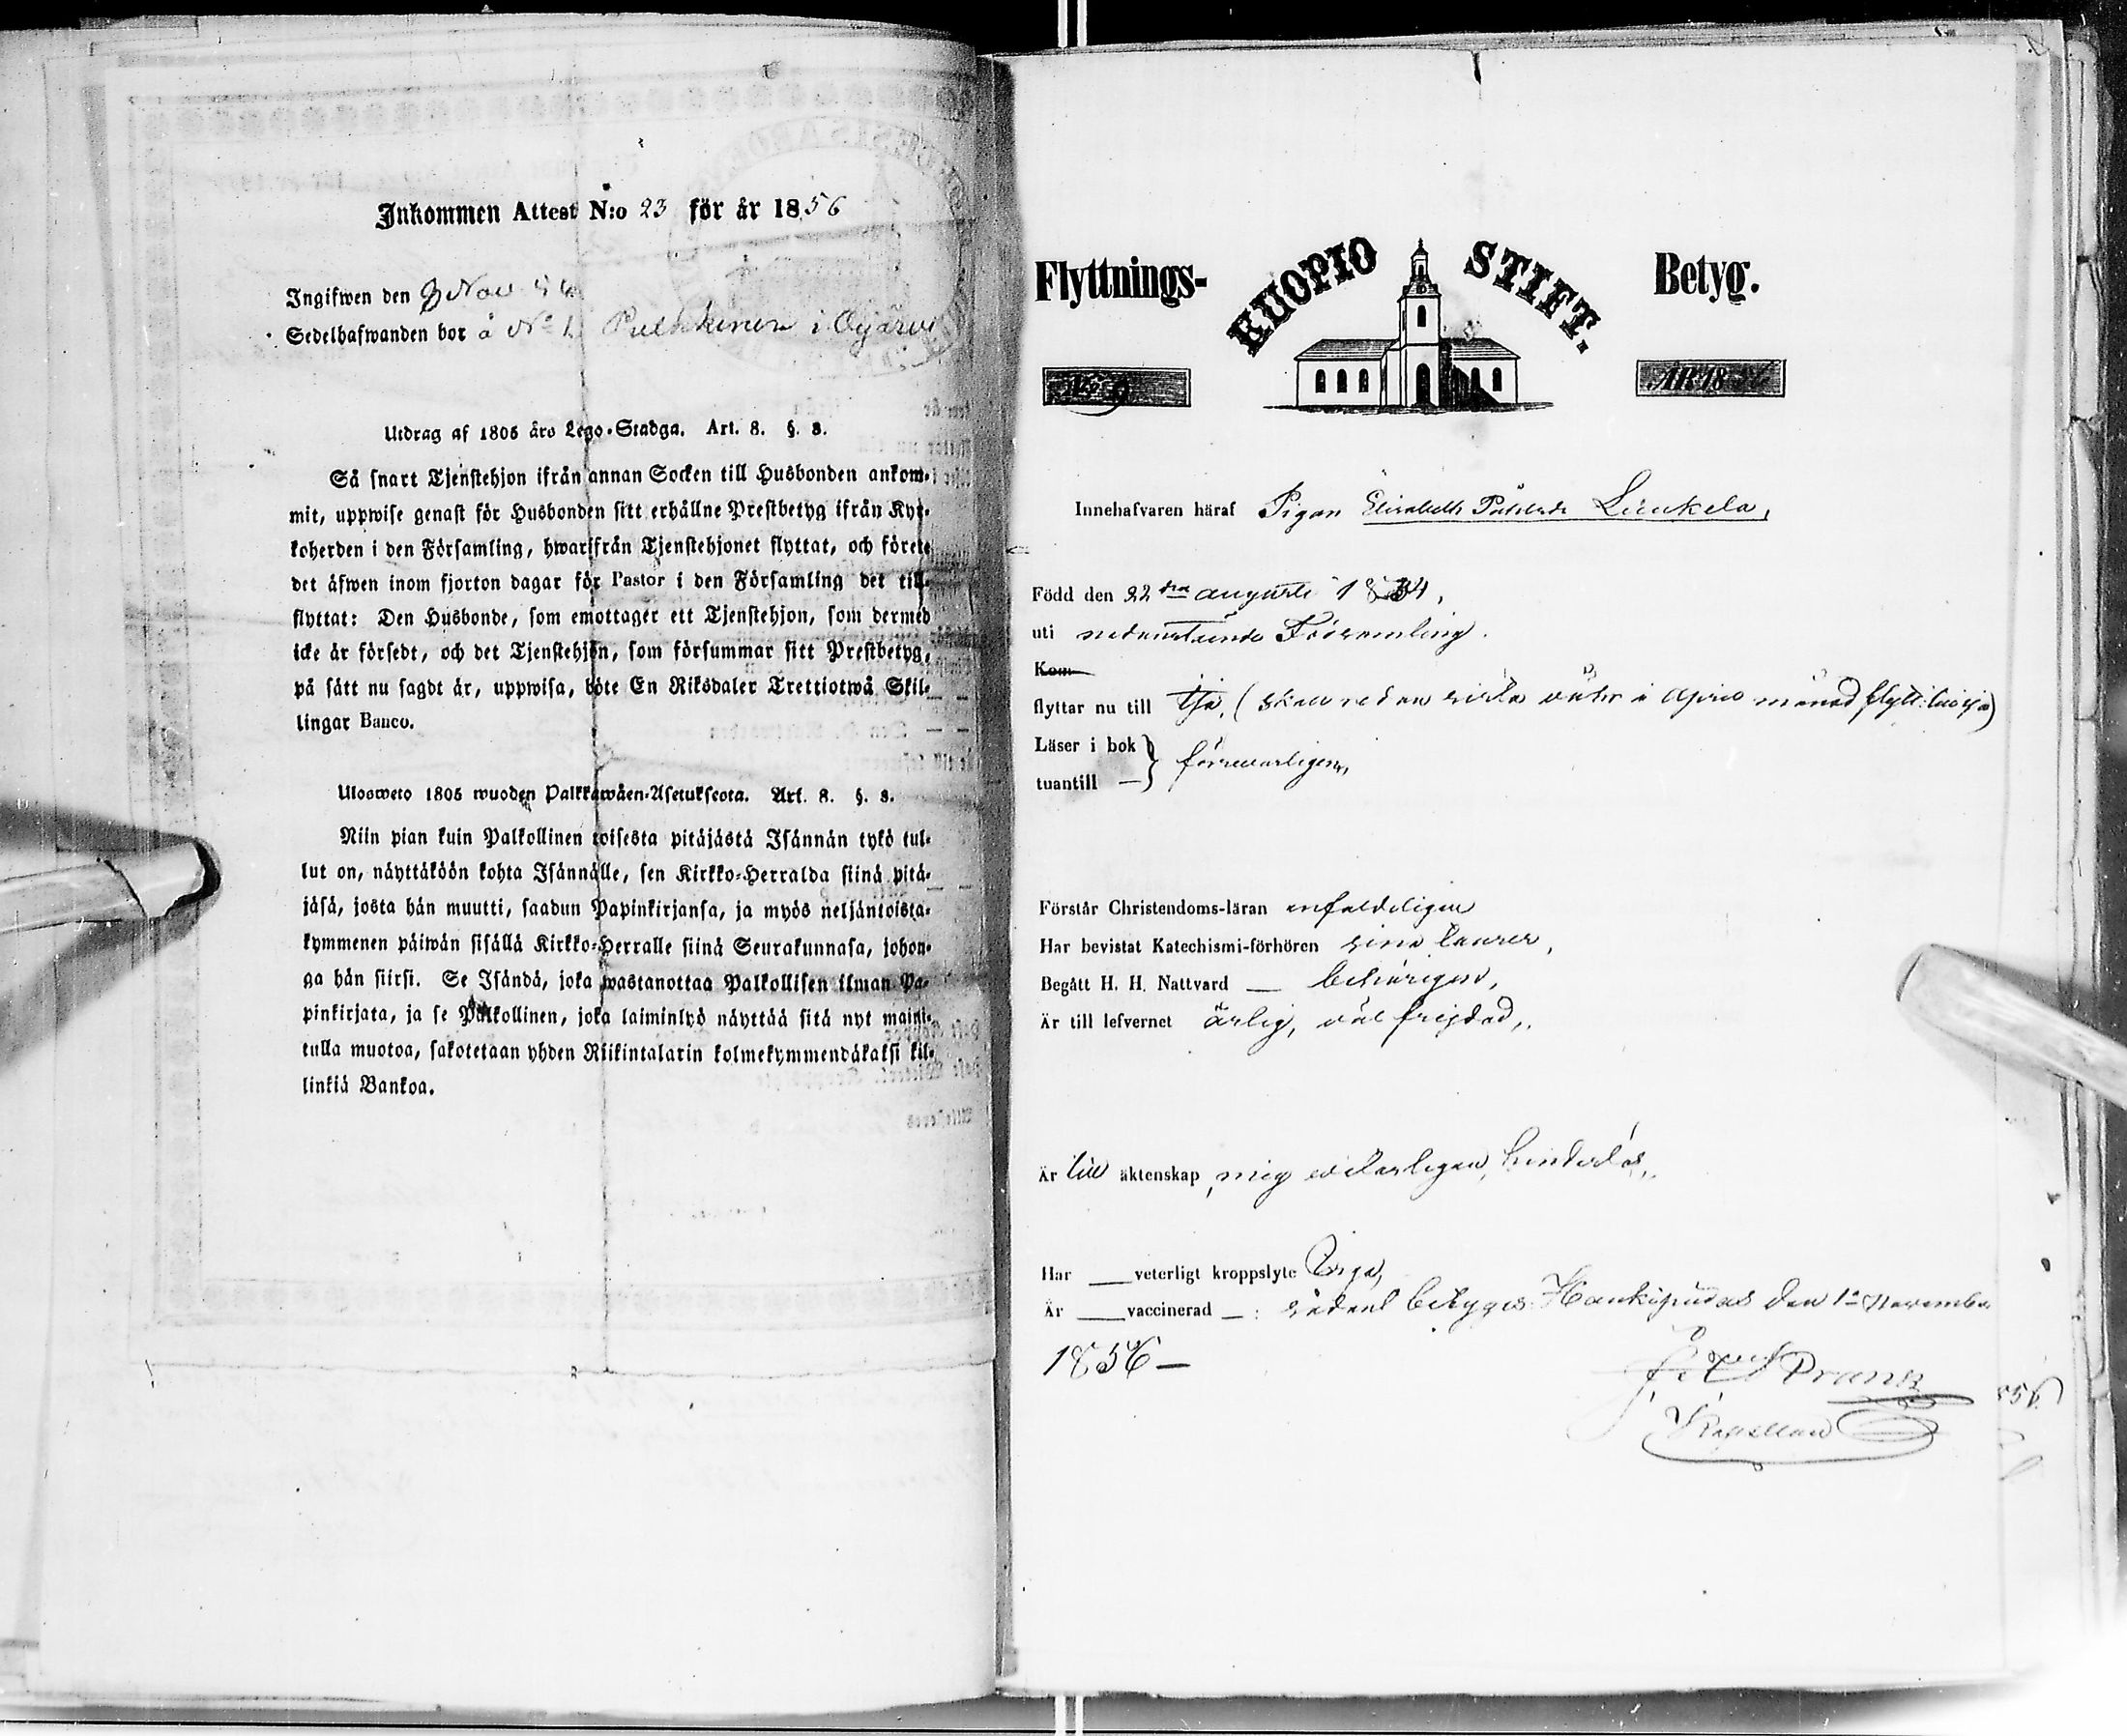 Inkommen Attest N:o 23 för år 1856
Ingifwen den 9 Nov 56
Sedelhafwanden bor å No 1 Pulkkinen i Oijärvi
Utdrag af 1805 års Lego-Stadga. Art. 8. §. 8.
Så snart Tjenstehjon ifrån annan Socken till Husbonden ankom-
mit, uppwise genast för Husbonden sitt erhållne Prestbetyg ifrån Kyr-
koherden i den Församling, hwarifrån Tjenstehjonet flyttat, och förete
det äfwen inom fjorton dagar för Pastor i den Församling det till-
flyttat: Den Husbonde, som emottager ett Tjenstehjon, som dermed
icke är försedt, och det Tjenstehjon, som försummar sitt Prestbetyg,
på sätt nu sagdt är, uppwisa, böte En Riksdaler Trettiotwå Skil-
lingar Banco.
Ulosweto 1805 wuoden Palkkawäen-Asetuksesta. Art. 8. §. 8.
Niin pian kuin Palkollinen toisesta pitäjästä Isännän tykö tul-
lut on, näyttäköön kohta Isännälle, sen Kirkko-Herralda siinä pitä-
jäsä, josta hän muutti, saadun Papinkirjansa, ja myös neljäntoista-
kymmenen päiwän sisällä Kirkko-Herralle siinä Seurakunnasa, johon-
ga hän siirsi. Se Isändä, joka wastanottaa Palkollisen ilman Pa-
pinkirjata, ja se Palkollinen, joka laiminlyö näyttää sitä nyt maini-
tulla muotoa, sakotetaan yhden Riikintalarin kolmekymmendäkaksi kil-
linkiä Bankoa.
Flyttnings- KUOPIO STIFT. Betyg.
No 9 ÅR 1856
Innehafvaren häraf Pigan Elisabeth Linkela,
Född den 22dra augusti 1834,
uti nedanstående Församling.
Kom
flyttar nu till Ijo, (skall redan sista vinter i April månad flytt till Ijo)
Läser i bok
tuantill — } försvarligen,
Förstår Christendoms-läran enfaldeligen
Har bevistat Katechismi-förhören sina turer,
Begått H. H. Nattvard — behörigen,
Är till lefvernet ärlig, väl frejdad,
Är till äktenskap, mig veterligen, hinderlös,
Har — veterligt kroppslyte Inga,
Är — vaccinerad — : sådant betygas Haukipudas den 1a November
1856 —
Frans
Kapellan